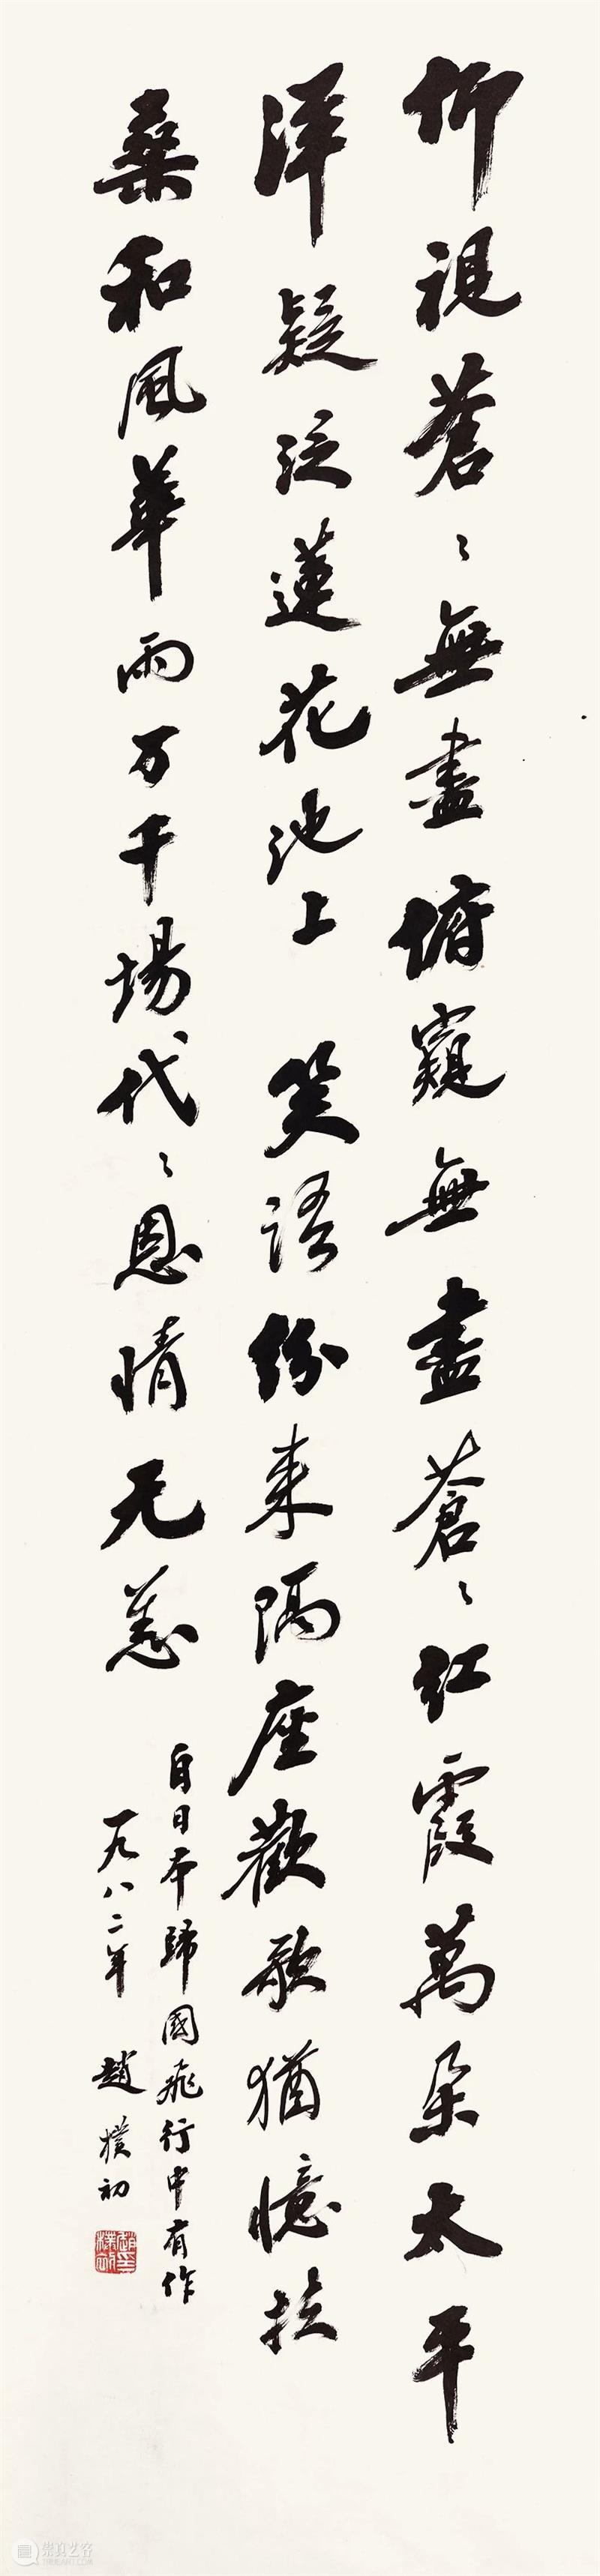 仰視蒼〻無盡俯窺無盡蒼〻紅霞萬朵太平
洋疑泛蓮花池上 笑語紛来隔座歡歌猶憶扶
桑和風華雨万千場代〻恩情无恙
自日本歸國飛行中有作
一九八二年 趙樸初
崇真艺客